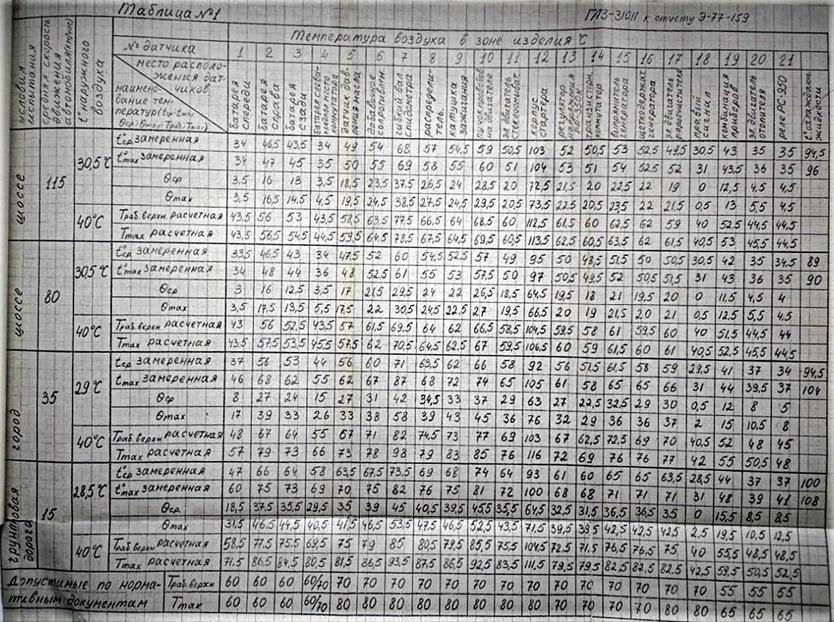 Таблица №1
ГАЗ-31011 к отчету Э-77-159
Температура воздуха в зоне изделия °С
Условия испытания
средняя скорость движения автомобиля (км/час)
t° наружного воздуха
№ датчика 1 2 3 4 5 6 7 8 9 10 11 12 13 14 15 16 17 18 19 20 21
место расположения датчиков
наименование температур
батарея спереди
батарея справа
батарея сзади
датчик давления масла
гибкий вал спидометра
распределитель
катушка зажигания
корпус стартера
правый сигнал
комбинация приборов
t° охлаждающ. жидкости
шоссе 115 30,5°С
tср замеренная 34 46,5 43,5 34 49 54 68 57 54,5 59 50,5 103 52 50,5 53 52,5 49,5 30,5 43 35 35 94,5
tmax замеренная 34 47 45 35 50 55 69 58 55 60 51 104 53 51 54 52,5 52 31 43,5 36 35 96
Θср 3,5 16 13 3,5 18,5 23,5 37,5 26,5 24 28,5 20 72,5 21,5 20 22,5 22 19 0 12,5 4,5 4,5
Θmax 3,5 16,5 14,5 4,5 19,5 24,5 38,5 27,5 24,5 29,5 20,5 73,5 22,5 20,5 23,5 22 21,5 0,5 13 5,5 4,5
40°С
Траб.верхн расчетная 43,5 56 53 43,5 58,5 63,5 77,5 66,5 64 68,5 60 112,5 61,5 60 62,5 62 59 40 52,5 44,5 44,5
Tmax расчетная 43,5 56,5 54,5 44,5 59,5 64,5 78,5 67,5 64,5 69,5 60,5 113,5 62,5 60,5 63,5 62 61,5 40,5 53 45,5 44,5
шоссе 80 30,5°С
tср замеренная 33,5 46,5 43 34 47,5 52 60 54,5 52,5 57 49 95 50 48,5 51,5 50 50,5 30,5 42 35 34,5 89
tmax замеренная 34 48 44 36 48 52,5 61 55 53 57,5 50 97 50,5 49,5 52 50,5 51,5 31 43 36 35 90
Θср 3 16 12,5 3,5 17 21,5 29,5 24 22 26,5 18,5 64,5 19,5 18 21 19,5 20 0 11,5 4,5 4
Θmax 3,5 17,5 13,5 5,5 17,5 22 30,5 24,5 22,5 27 19,5 66,5 20 19 21,5 20 21 0,5 12,5 5,5 4,5
40°С
Траб.верхн расчетная 43 56 52,5 43,5 57 61,5 69,5 64 62 66,5 58,5 104,5 59,5 58 61 59,5 60 40 51,5 44,5 44
Tmax расчетная 43,5 57,5 53,5 45,5 57,5 62 70,5 64,5 62,5 67 59,5 106,5 60 59 61,5 60 61 40,5 52,5 45,5 44,5
город 35 29°С
tср замеренная 37 56 53 44 56 60 71 63,5 62 66 58 92 56 51,5 61,5 58 59 29,5 41 37 34 94,5
tmax замеренная 46 68 62 55 62 67 87 68 72 74 65 105 61 58 65 65 66 31 44 39,5 37 104
Θср 8 27 24 15 27 31 42 34,5 33 37 29 63 27 22,5 32,5 29 30 0,5 12 8 5
Θmax 17 39 33 26 33 38 58 39 43 45 36 76 32 29 36 36 37 2 15 10,5 8
40°С
Траб.верхн расчетная 48 67 64 55 67 71 82 74,5 73 77 69 103 67 62,5 72,5 69 70 40,5 52 48 45
Tmax расчетная 57 79 73 66 73 78 98 79 83 85 76 116 72 69 76 76 77 42 55 50,5 48
грунтовая дорога 15 28,5°С
tср замеренная 47 66 64 58 63,5 67,5 73,5 69 68 74 64 93 61 60 65 65 63,5 28,5 44 37 37 100
tmax замеренная 60 75 73 69 70 75 82 76 75 81 72 100 68 68 71 71 71 31 48 39 41 108
Θср 18,5 37,5 35,5 29,5 35 39 45 40,5 39,5 45,5 35,5 64,5 32,5 31,5 36,5 36,5 35 0 15,5 8,5 8,5
Θmax 31,5 46,5 44,5 40,5 41,5 46,5 53,5 47,5 46,5 52,5 43,5 71,5 39,5 39,5 42,5 42,5 42,5 2,5 19,5 10,5 12,5
40°С
Траб.верхн расчетная 58,5 77,5 75,5 69,5 75 79 85 80,5 79,5 85,5 75,5 104,5 72,5 71,5 76,5 76,5 75 40 55,5 48,5 48,5
Tmax расчетная 71,5 86,5 84,5 80,5 81,5 86,5 93,5 87,5 86,5 92,5 83,5 111,5 79,5 79,5 82,5 82,5 82,5 42,5 59,5 50,5 52,5
Допустимые по нормативным документам
Траб.верхн 60 60 60 60/70 70 70 70 70 70 70 70 70 70 70 70 70 70 70 55 55 55
Tmax 60 60 60 60/70 80 80 80 80 80 80 80 80 70 70 70 70 80 80 65 65 65